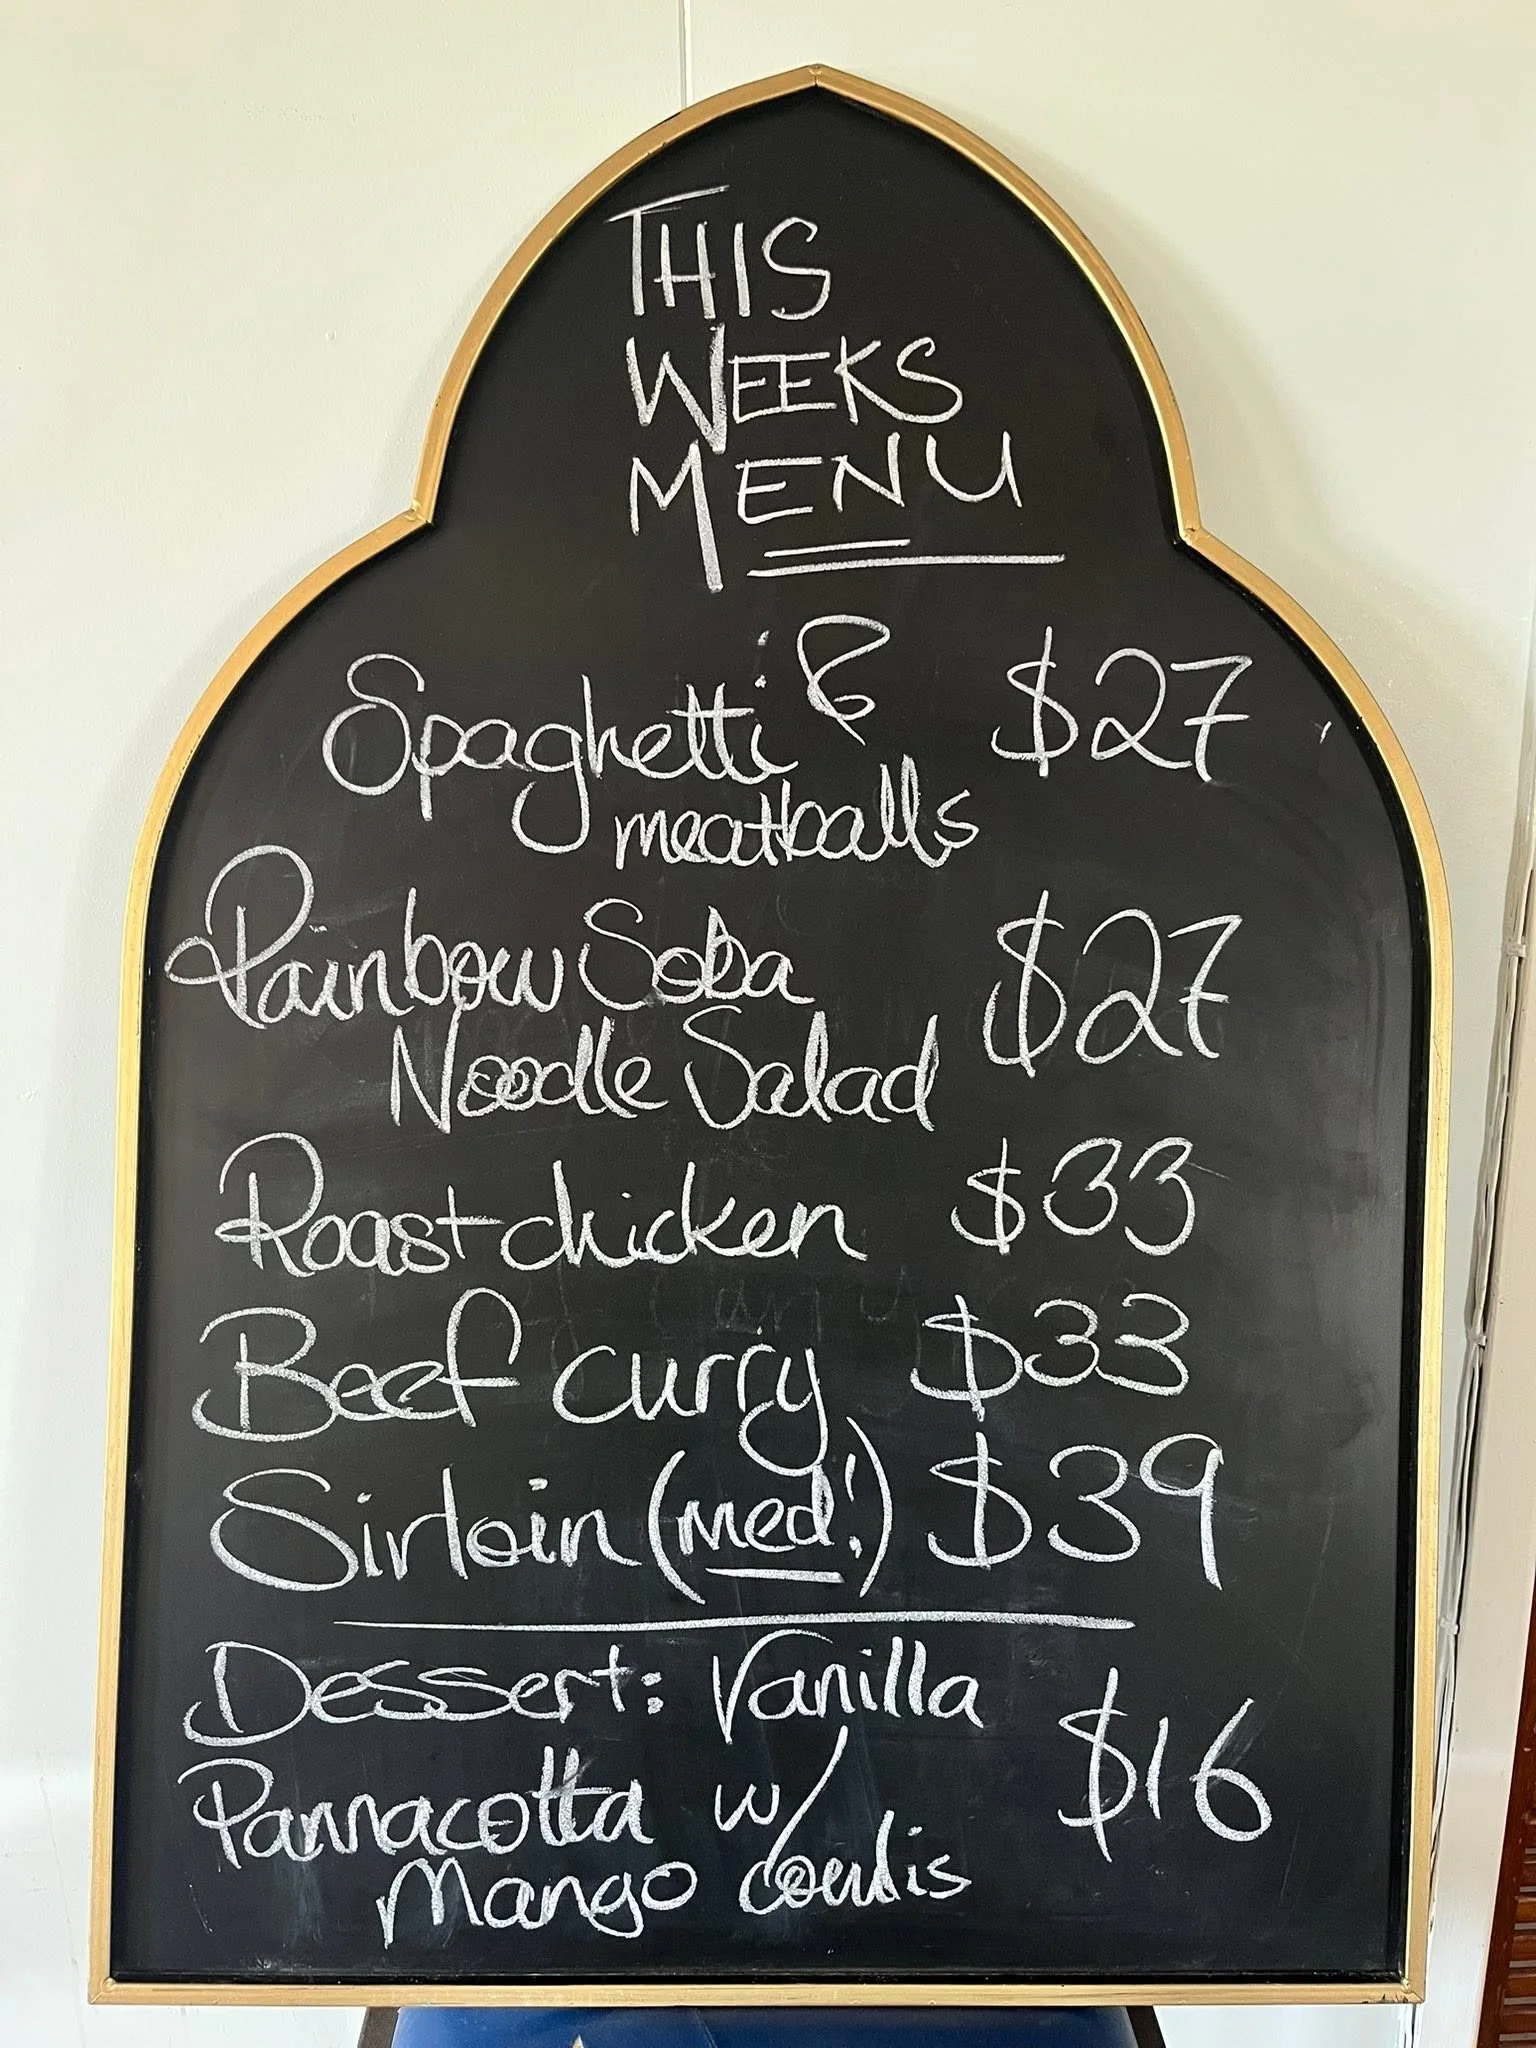 THIS
WEEKS
MENU
Spaghetti & $27
meatballs
Rainbow Soba $27
Noodle Salad
Roast chicken $33
Beef curry $33
Sirloin (med!) $39
Dessert: Vanilla
Pannacotta w/ $16
Mango coulis